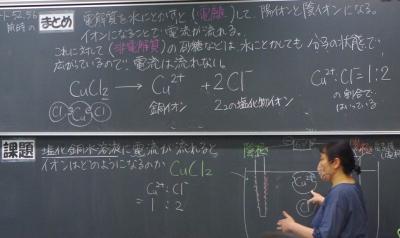 まとめ 電解質を水にとかすと(電離)して、陽イオンと陰イオンになる。
イオンになることで電流が流れる。
これに対して(非電解質)の砂糖などは水にとかしても分子の状態で
広がっているので、電流は流れない。
CuCl₂ → Cu²⁺ + 2Cl⁻
銅イオン 2つの塩化物イオン
Cl⁻ Cu²⁺ Cl⁻
Cu²⁺:Cl⁻=1:2
の割合で
はいっている
課題 塩化銅水溶液に電流が流れると
イオンはどのようになるのか CuCl₂
Cu²⁺:Cl⁻
=1:2
陰極
Cu²⁺
Cl⁻